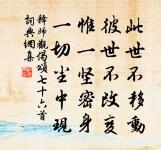 此世不移動
彼世不改變
惟一堅密身
一切尘中現
釋師觀偈頌七十六首
詞典網集